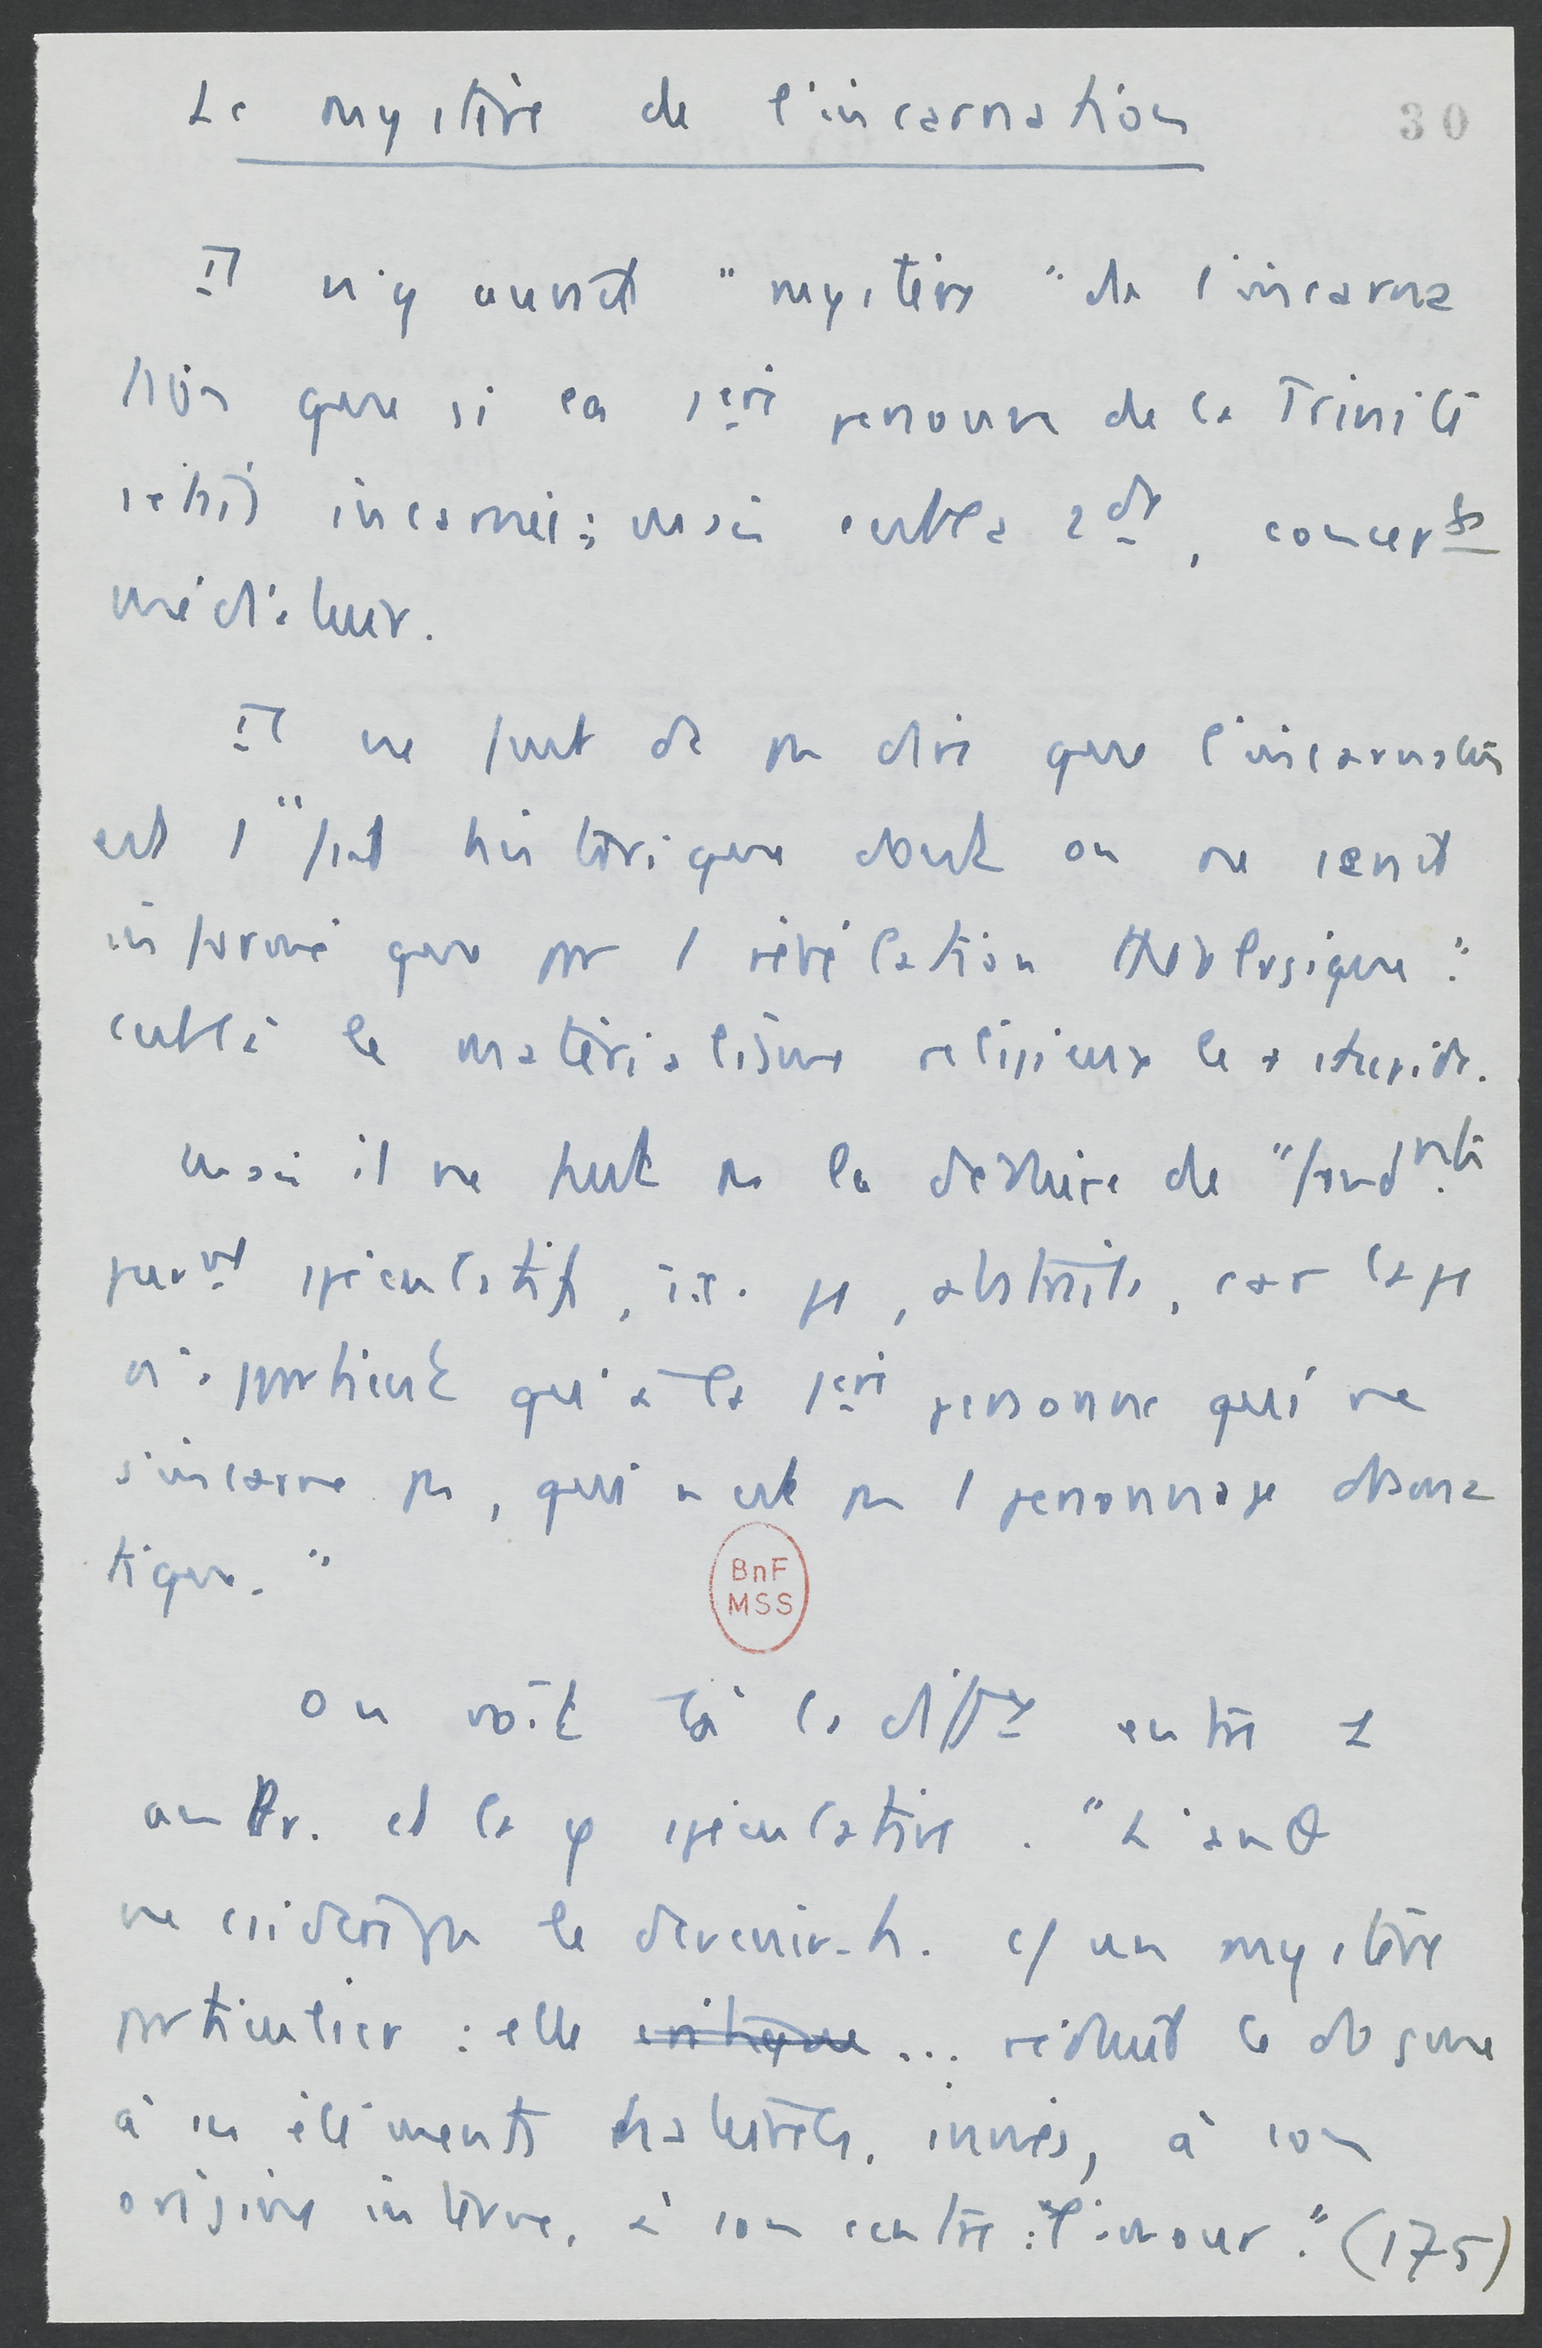 Le mystère de l'incarnation
30
Il n'y aurait "mystère" de l'incarna
tion que si la 1ère personne de la Trinité
s'était incarnée; mais c'est la 2de, comme
médiateur.
Il ne faut dc pas dire que l'incarnation
est 1 "fait historique dont on ne serait
informé que par 1 révélation théologique":
c'est là le matérialisme religieux le + stupide.
Mais il ne faut pas la déduire de "fondmts
purmt spéculatifs, i.e. φ, abstraits, car la φ
n'appartient qu'à la 1ère personne qui ne
s'incarne pas, qui n'est pas 1 personnage dogma
tique."
BnF
MSS
On voit là la diffce entre l'
anthr. et la φ spéculative. "L'anθ
ne csidère pas le devenir-h. c/ un mystère
particulier : elle critique ... réduit le dogme
à ses éléments naturels, innés, à son
origine interne, à son centre : l'amour." (175)